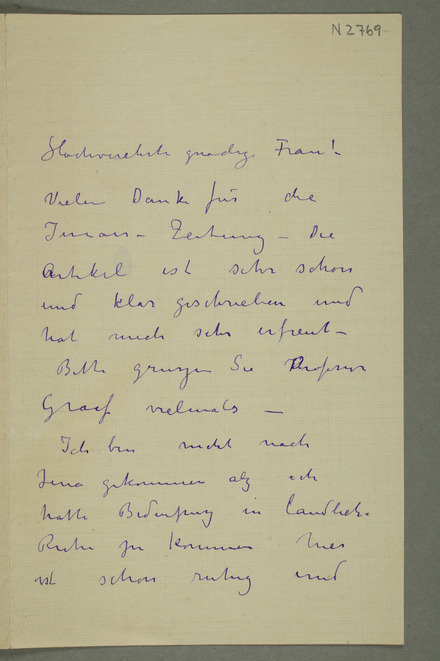 N2769
Hochverehrte gnädige Frau!
Vielen Dank für die
Zeitung – Die
Artikel ist sehr schön
und klar geschrieben und
hat mich sehr erfreut –
Bitte grussen Sie Professor
Graef vielmals –
Ich bin nicht nach
Jena gekommen als ich
hatte in landliche
Ruhe zu kommen hier
ist schon ruhig und